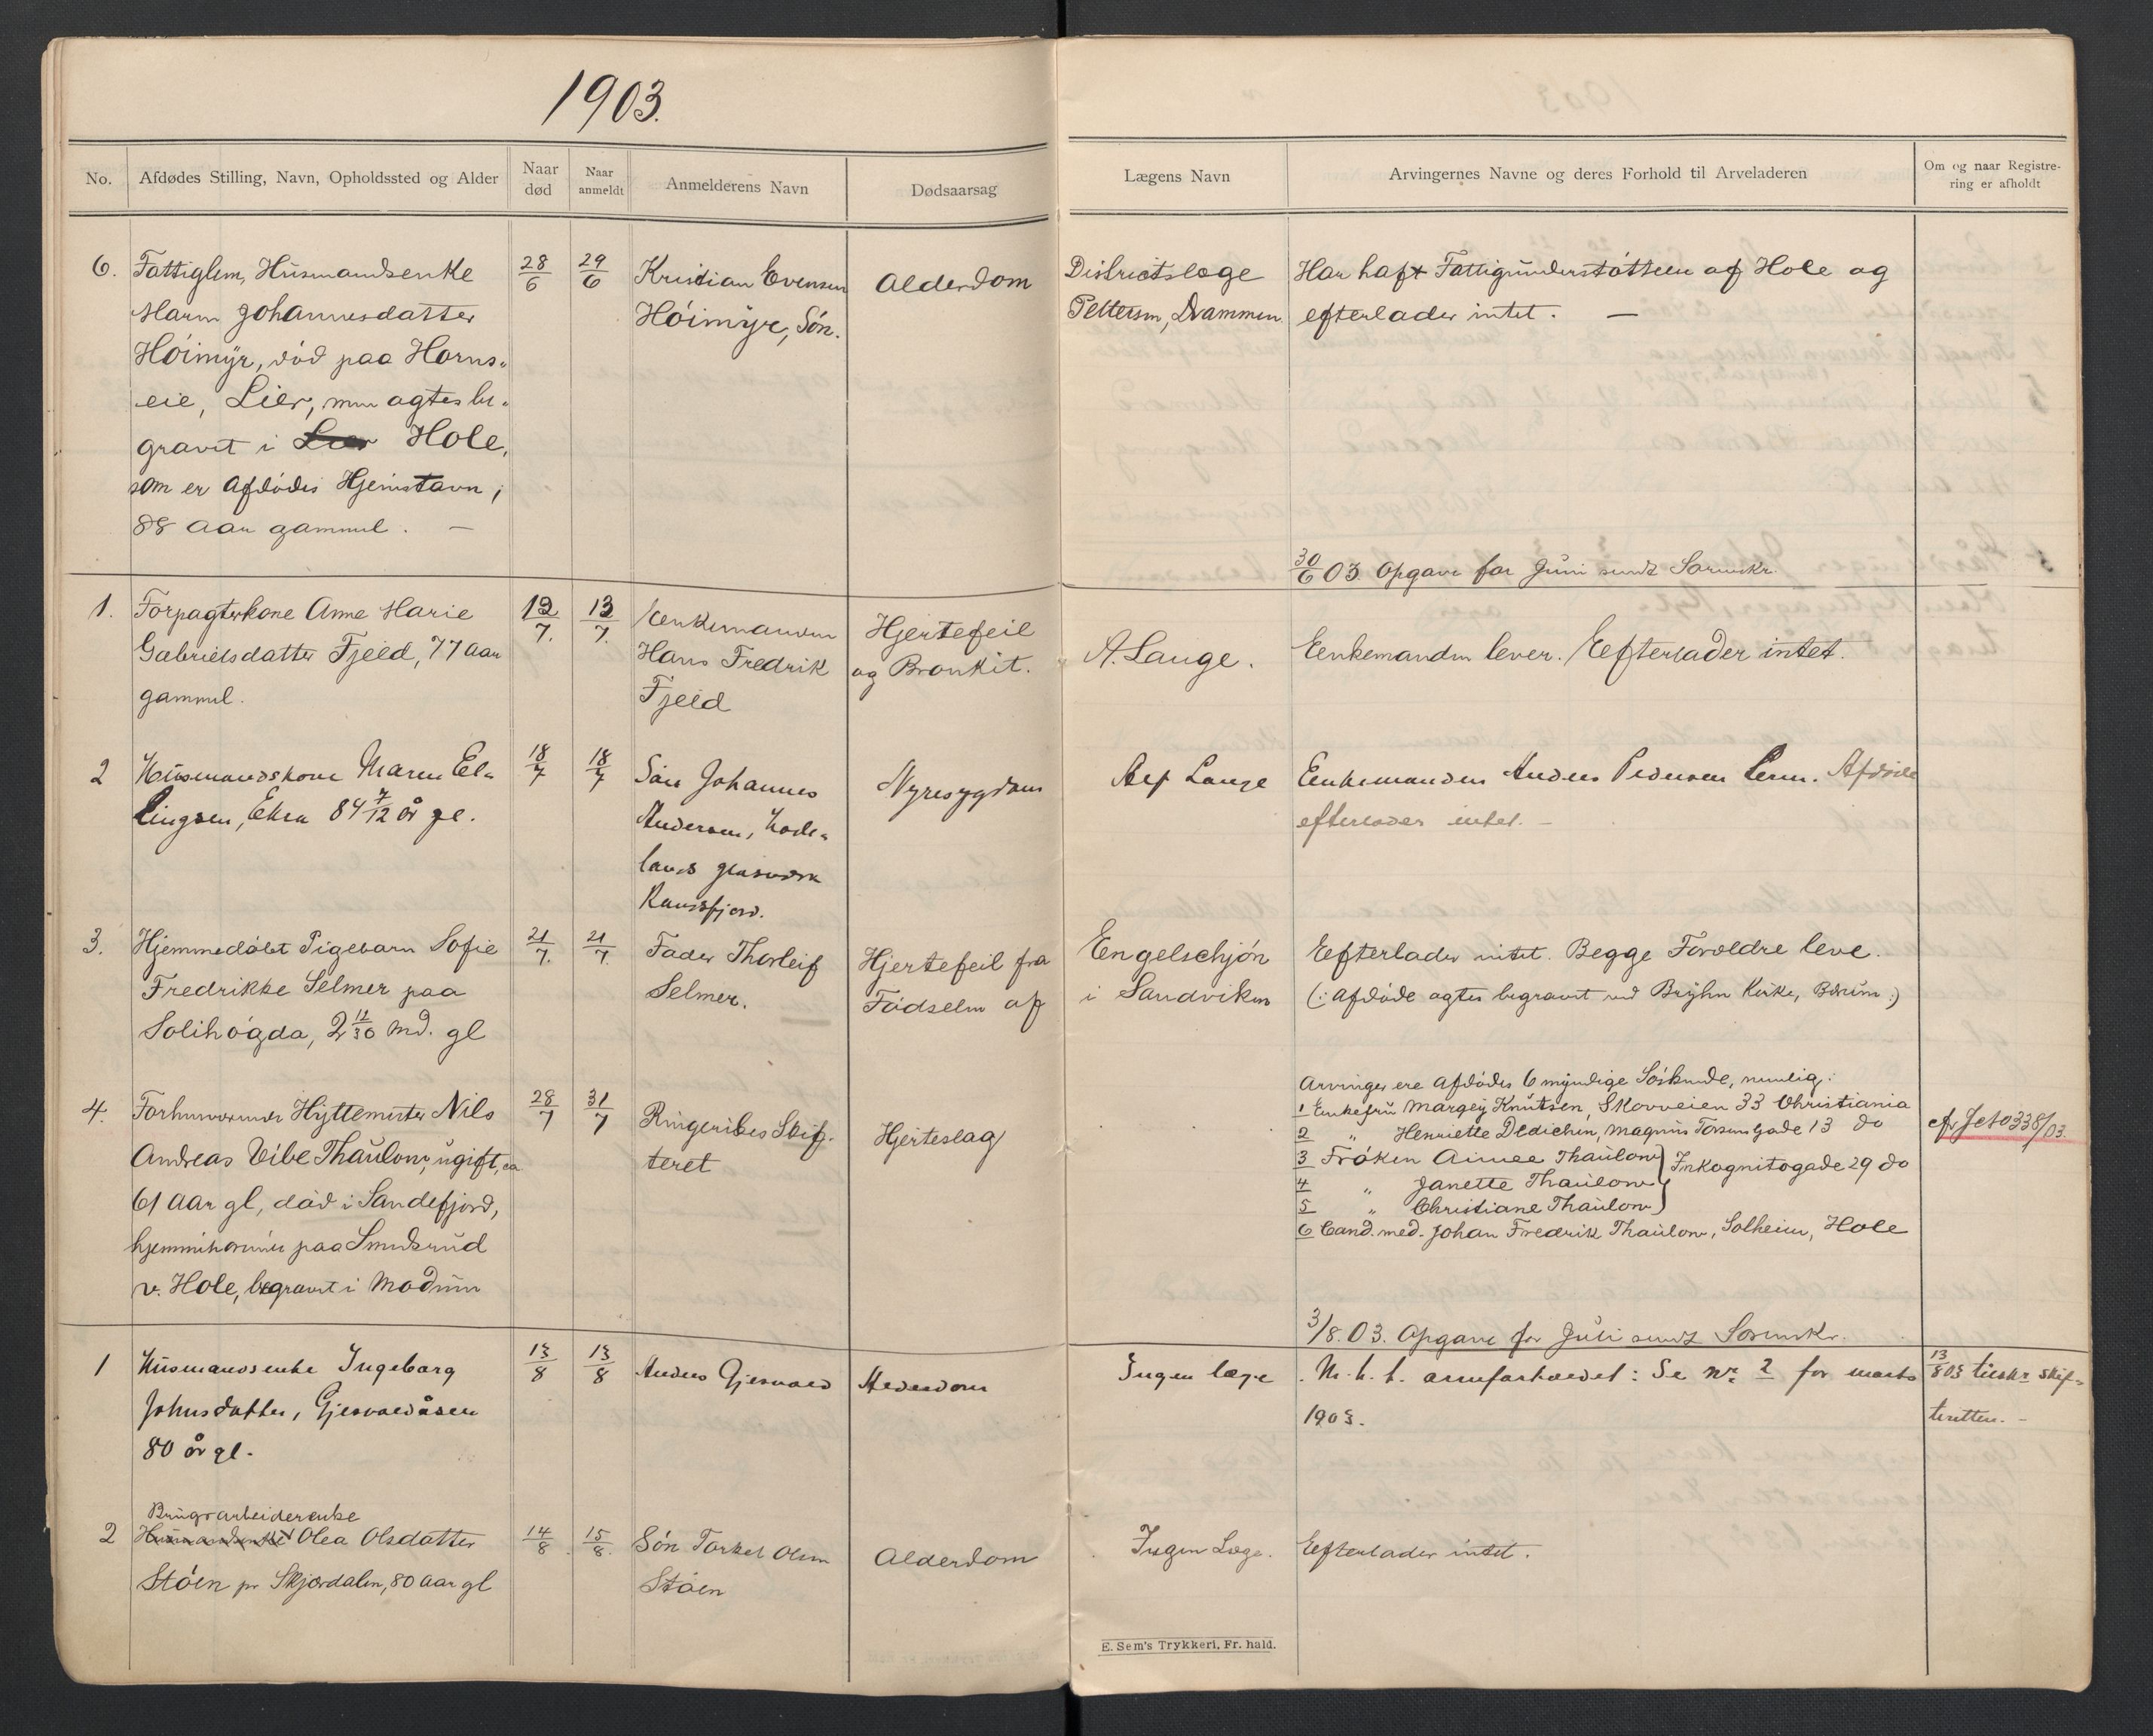 1903.
No.
Afdødes Stilling, Navn, Opholdssted og Alder
Naar død
Naar anmeldt
Anmelderens Navn
Dødsaarsag
Lægens Navn
Arvingernes Navne og deres Forhold til Arveladeren
Om og naar Registrering er afholdt
6.
Fattiglem, Husmandsenke
Maren Johannesdatter
Höimyr, död paa Horns-
eie, Lier, men agtes be-
gravet i Lier Hole,
som er Afdödes Hjemstavn;
88 Aar gammel. —
28/6
29/6
Kristian Evensen
Höimyr, Sön.
Alderdom
Districtslæge
Pettersen, Drammen.
Har haft Fattigunderstöttelse af Hole og
efterlader intet. —
30/6 03. Opgave for Juni sendt Sorenskr.
1.
Forpagterkone Anne Marie
Gabrielsdatter Fjeld, 77 Aar
gammel.
12/7.
13/7.
Enkemanden
Hans Fredrik
Fjeld
Hjertefeil
og Bronkit.
A. Lange.
Enkemanden lever. Efterlader intet.
2
Husmandskone Maren El-
lingsen, Ekra 84 7/12 år gl.
18/7
18/7
Sön Johannes
Andersen, Hade-
lands glasværk
Randsfjord.
Nyresygdom
Alf Lange
Enkemanden Anders Pedersen lever. Afdöde
efterlader intet. —
3.
Hjemmedöbt Pigebarn Sofie
Fredrikke Selmer paa
Solihögda, 2 11/30 Md. gl
21/7.
21/7.
Fader Thorleif
Selmer.
Hjertefeil fra
Födselen af
Engelschjön
i Sandviken
Efterlader intet. Begge Forældre leve.
(: Afdöde agtes begravet ved Bryhn Kirke, Bærum :)
4.
Forhenværende Hyttemester Nils
Andreas Vibe Thaulow, ugift, ca
61 Aar gl, död i Sandefjord,
hjemmehörende paa Smedsrud
v. Hole, begravet i Modum
28/7
31/7
Ringerikes Skif-
teret
Hjerteslag
Arvinger ere Afdödes 6 myndige Söskende, nemlig:
1 Enkefru Margey Knutsen, Skovveien 33 Christiania
2 " Henriette Dedichen, Magnus Torsens Gade 13 do
3 Fröken Aimee Thaulow } Inkognitogade 29 do
4 " Janette Thaulow
5 " Christiane Thaulow
6 Cand. med. Johan Fredrik Thaulow, Solheim, Hole
338/03.
3/8.03. Opgave for Juli sendt Sorenskr.
1
Husmandsenke Ingeborg
Johnsdatter, Gjesvoldåsen
80 år gl.
13/8
13/8
Anders Gjesvold
Alderdom
Ingen læge
M. h. t. arveforholdet: Se nr. 2 for marts
1903.
13/8 03 tilskr. skif-
teretten. —
2
Brugsarbeiderenke
Husmandsenke Olea Olsdatter
Stöen pr Skjærdalen, 80 Aar gl
14/8.
15/8.
Sön Torkel Olsen
Stöen
Alderdom
Ingen Læge.
Efterlader intet.
E. Sem's Trykkeri, Fr. hald.